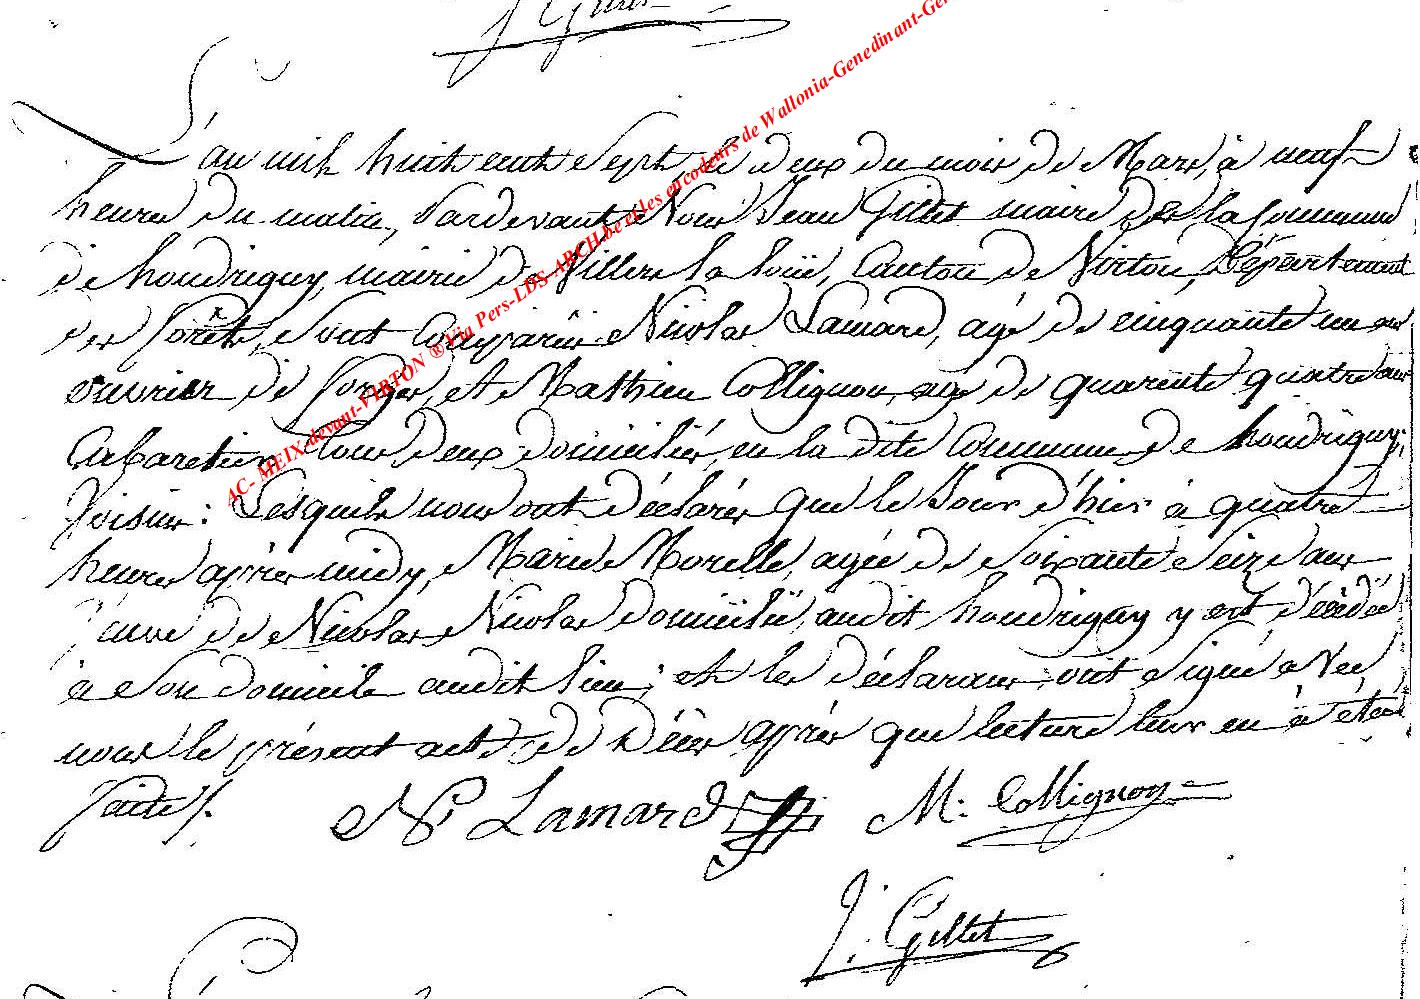 J. Gillet
L'an mil huit cent Sept le deux du mois de Mars, à neuf
heures du matin, Pardevant Nous Jean Gillet maire de la Commune
de houdrigny, mairie de Villers la loüe, Canton de Virton, Département
des forêts, Sont Comparus Nicolas Lamard, agé de cinquante un ans
ouvrier de forges, et Mathieu Collignon agé de quarente quatre ans
Cabaretier, tous deux domiciliés en la dite Commune de houdrigny,
Voisins : Lesquels nous ont déclarés que le Jour d'hier à quatre
heures après midy, Marie Morelle, agée de Soixante Seize ans
Veuve de Nicolas Nicolas domiciliée, audit houdrigny y est décédée
à Son domicile audit lieu ; et les déclarans ont Signé avec
nous le présent acte de Décès après que lecture leur en à été
faite /.
N. Lamard M: Collignon
J. Gillet
AC- MEIX-devant-VIRTON ® Via Pers-LDS-ARCH.be et les encodeurs de Wallonia-Genedinant-Ge